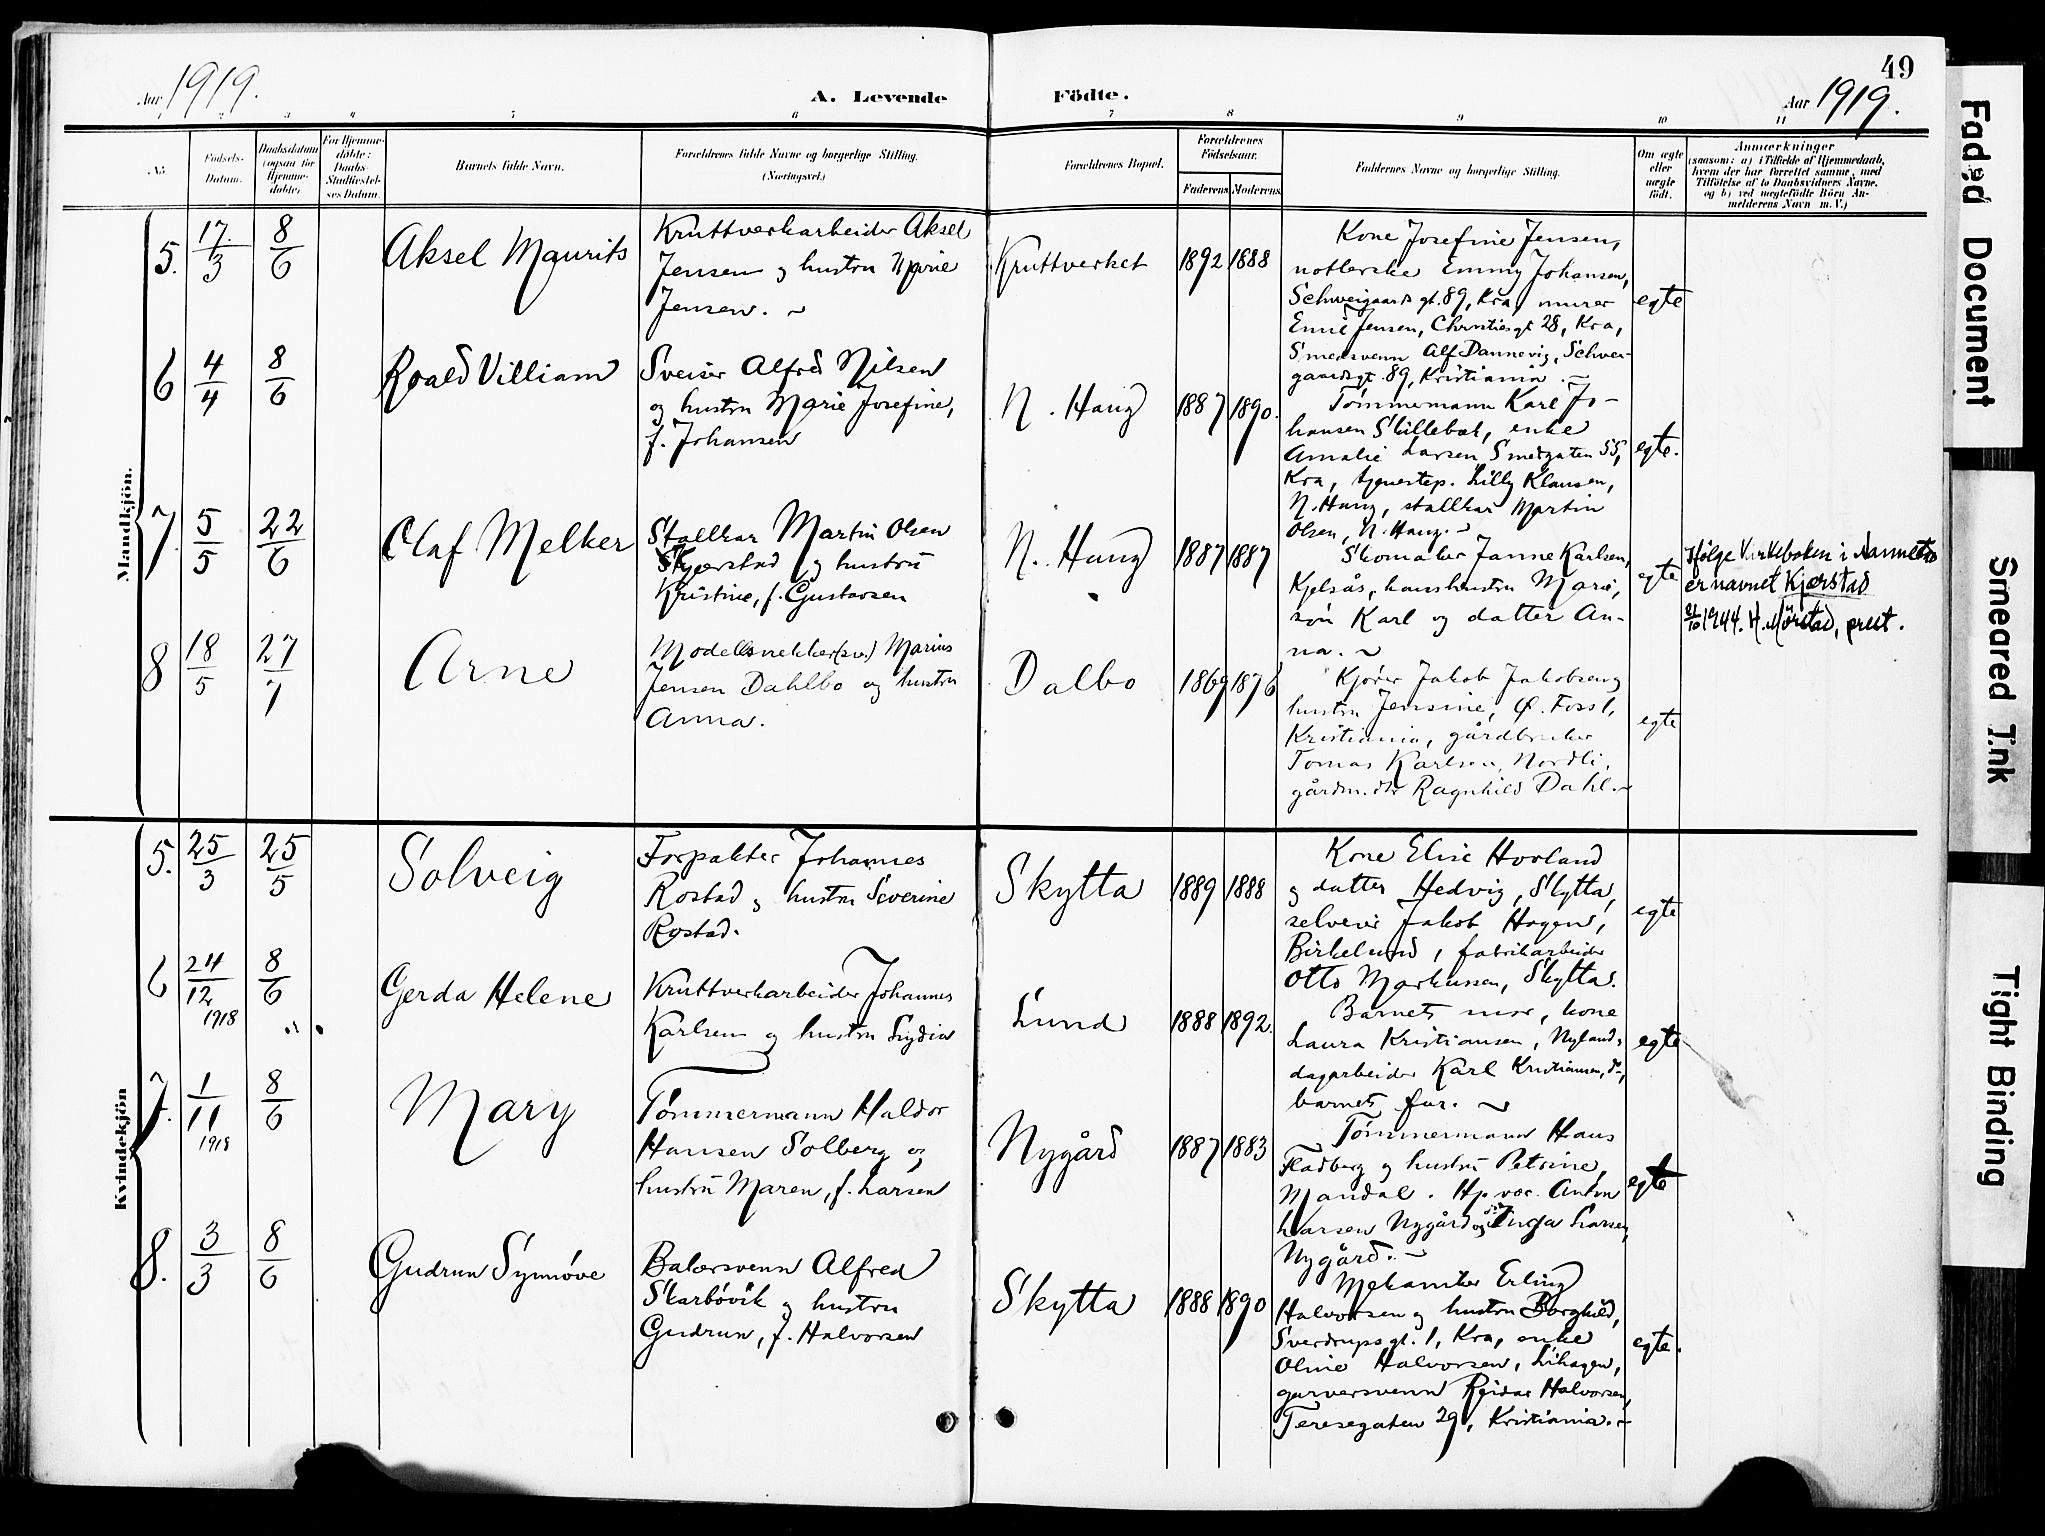 49
Aar 1919.
A. Levende Födte.
Aar 1919.
1 2 3 4 5 6 7 8 9 10 11
No.
Födsels-
Datum.
Daabsdatum
(ogsaa for
Hjemme-
döbte).
For Hjemme-
döbte:
Daabs-
Stadfæstel-
ses Datum.
Barnets fulde Navn.
Forældrenes fulde Navne og borgerlige Stilling.
(Næringsvei.)
Forældrenes Bopæl.
Forældrenes
Födselsaar.
Faderens Moderens
Faddernes Navne og borgerlige Stilling.
Om ægte
eller
uægte
födt.
Anmærkninger
(saasom: a) i Tilfælde af Hjemmedaab,
hvem der har forrettet samme, med
Tilföielse af to Daabsvidners Navne,
og b) ved uægtefödte Börn An-
melderens Navn m. V.)
Mandkjön.
5. 17/3 8/6 Aksel Maurits
Kruttverkarbeider Aksel
Jensen og hustru Marie
Jensen. ~
Kruttverket 1892 1888
Kone Josefine Jensen,
Emmy Johansen,
Schweigaards gt. 89, Kra, murer
Emil Jensen, Christiesgt 28, Kra,
Smedsvenn Alf Dannevig, Schwei-
gaardsgt. 89, Kristiania. ~
egte
6 4/4 8/6 Roald Villiam
Sveiser Alfred Nilsen
og hustru Marie Josefine,
f. Johansen
N. Haug 1887 1890.
Tømmermann Karl Jo-
hansen Skillebæk, enke
Amalie Larsen, Smedgaten 55,
Kra, tjenestep. Lilly Klausen,
N. Haug, stallkar Martin
Olsen, N. Haug. ~
egte.
7. 5/5 22/6 Olaf Melker
Stallkar Martin Olsen
Skjerstad og hustru
Kristine, f. Gustavsen
N. Haug 1887 1887
Skomaker Janne Karlsen,
Kjelsås, hans hustru Marie,
søn Karl og datter An-
na. ~
egte
Ifølge Kirkeboken i Nannestad
er navnet Kjærstad
21/10 1944. H. Mørstad, prest.
8 18/5 27/7 Arne
Modellsnekker(sv.) Marius
Jensen Dahlbo og hustru
Anna.
Dalbo 1869 1876
Kjører Jakob Jakobsen og
hustru Jensine, Ø. Foss 1,
Kristiania, gårdbruker
Tomas Karlsen, Nordli,
gårdm.dtr Ragnhild Dahl. ~
egte
Kvindekjön
5. 25/3 25/5 Solveig
Forpakter Johannes
Rostad og hustru Severine
Rostad.
Skytta 1889 1888
Kone Elise Hovland
og datter Hedvig, Skytta,
selveier Jakob Hagen,
Birkelund, fabrikarbeider
Otto Markussen, Skytta.
egte
6 24/12 1918 8/6 Gerda Helene
Kruttverkarbeider Johannes
Karlsen og hustru Lydia
Lund 1888 1892.
Barnets mor, kone
Laura Kristiansen, Nyland,
dagarbeider Karl Kristiansen, do,
barnets far. ~
egte
7. 1/11 1918 8/6 Mary
Tømmermann Haldor
Hansen Solberg og
hustru Maren, f. Larsen
Nygård 1887 1883
Tømmermann Hans
Fladberg og hustru Petrine,
Mandal. Anton
Larsen Nygård og Inga Larsen,
Nygård. ~
egte
8. 3/3 8/6 Gudrun Synnøve
Bakersvenn Alfred
Skarbøvik og hustru
Gudrun, f. Halvorsen
Skytta 1888 1890
Mekaniker Erling
Halvorsen og hustru Borghild,
Sverdrupsgt. 1, Kra, enke
Oline Halvorsen, Lihagen,
garversvenn Reidar Halvorsen,
Teresegaten 29, Kristiania. ~
egte.
Faded Document
Smeared Ink
Tight Binding